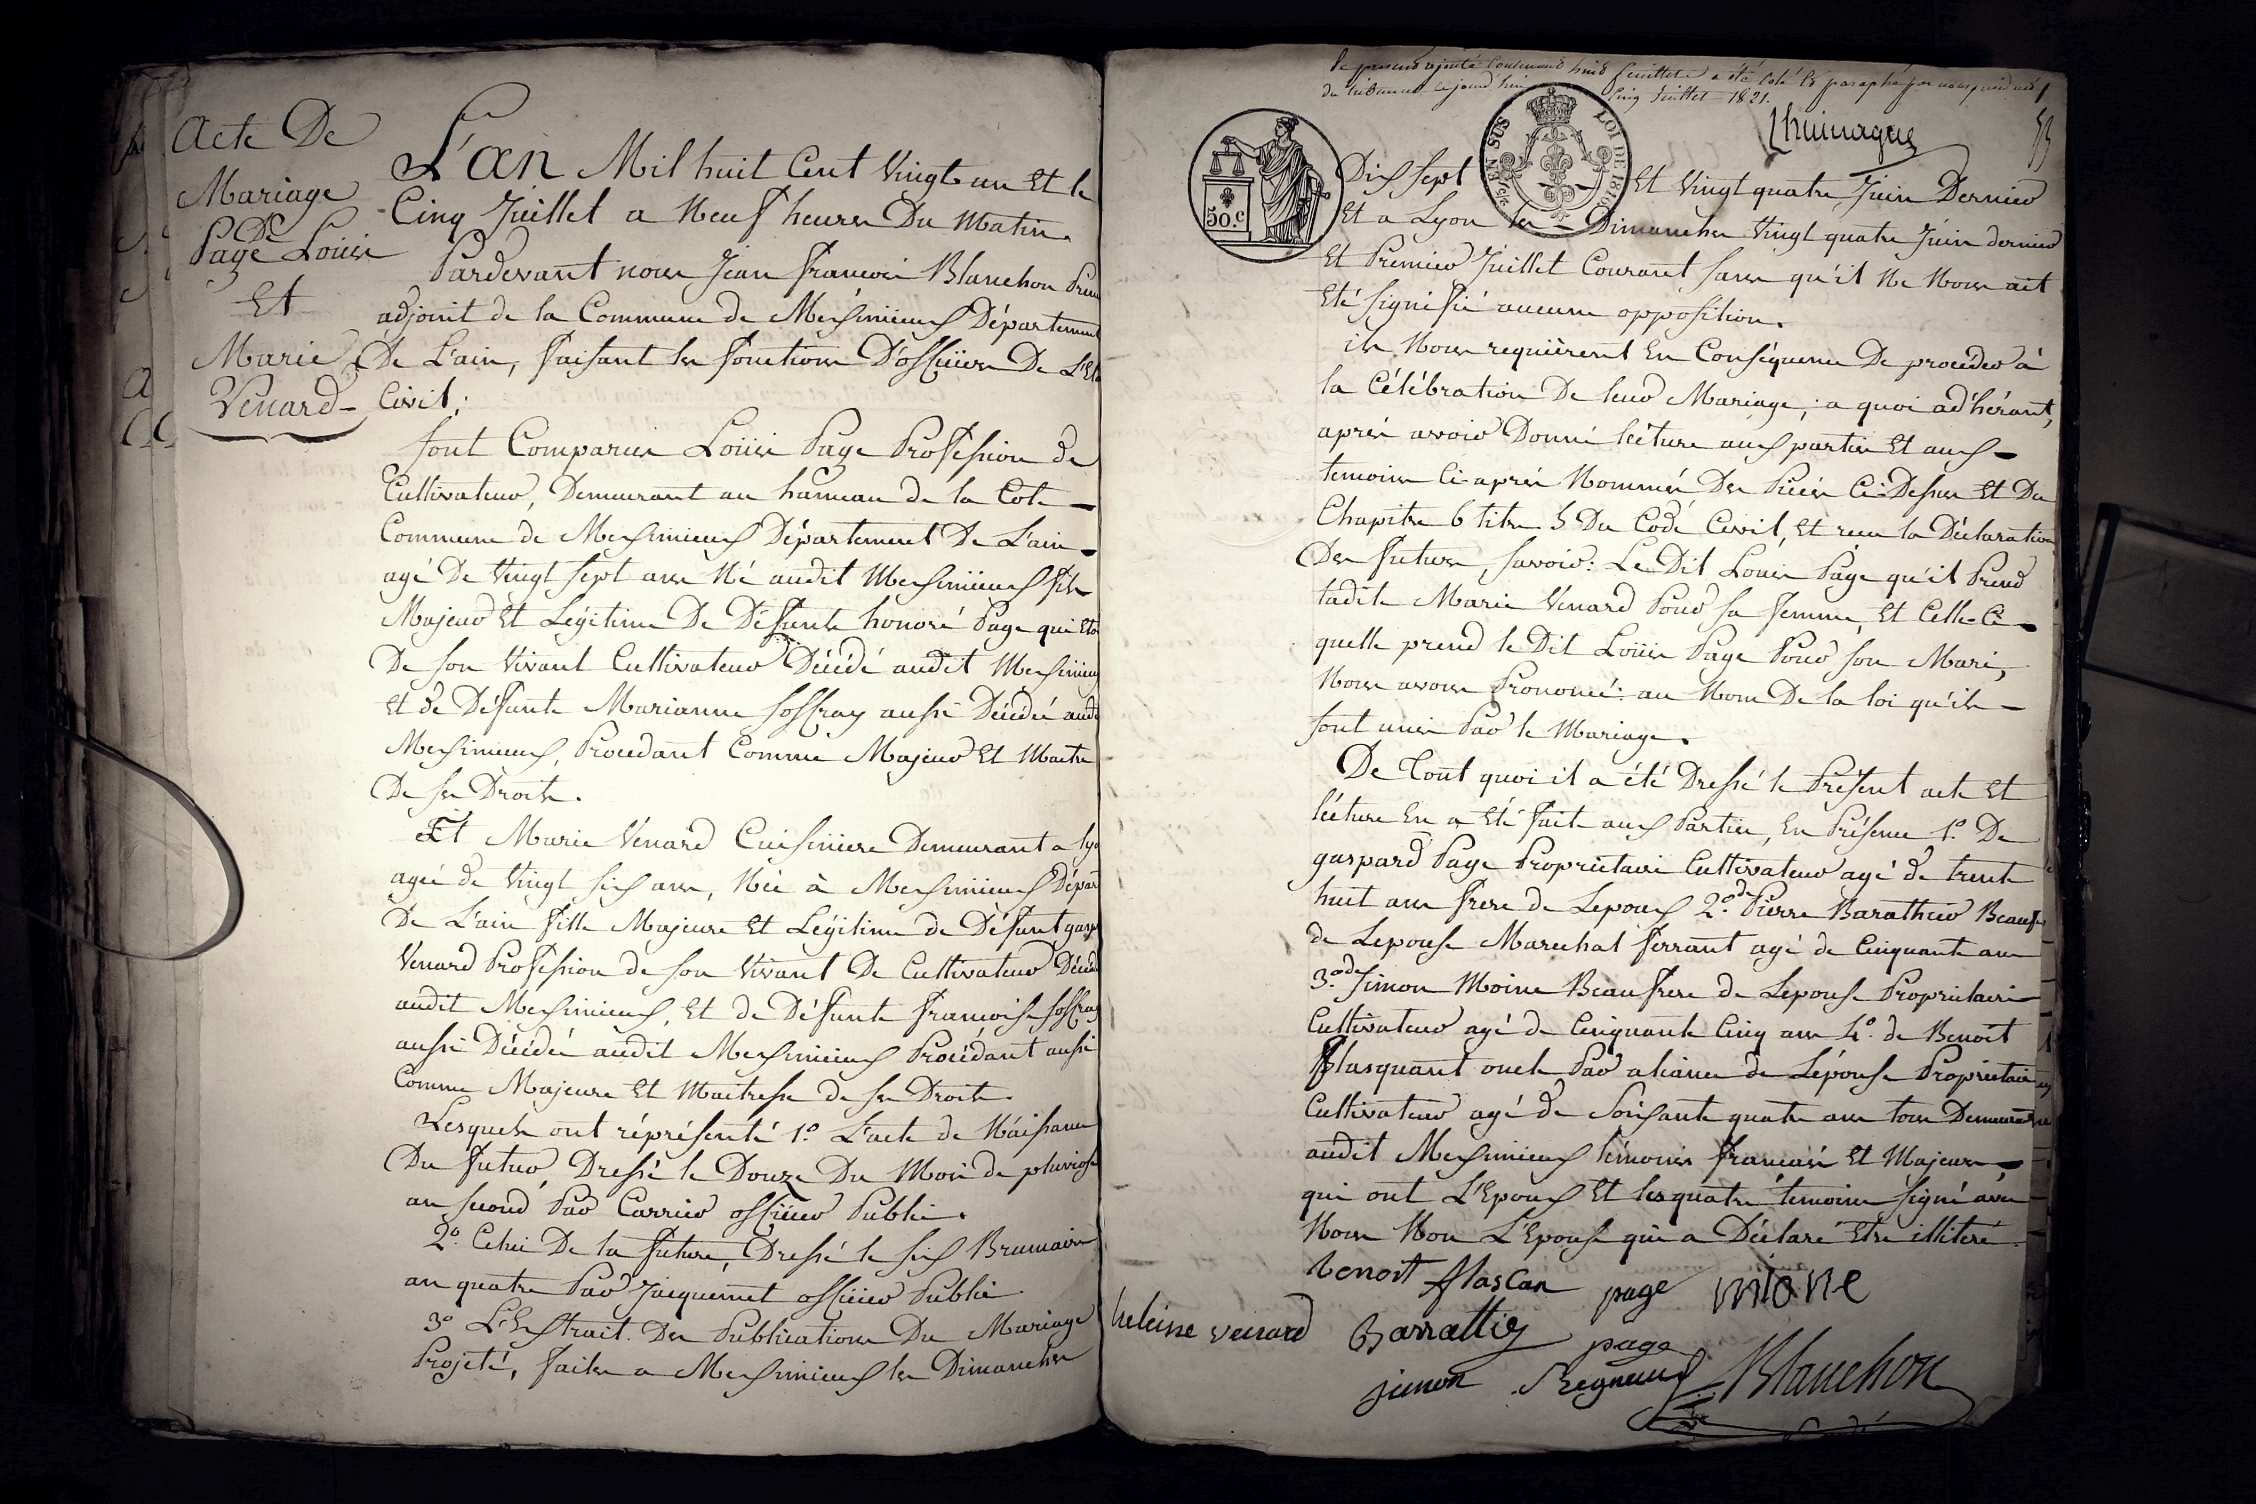 Acte De
Mariage
De
Page Louis
Et
Marie
Venard
L'an Mil huit Cent Vingt un Et le
Cinq Juillet a Neuf heures Du Matin.
Pardevant nous Jean francois Blanchon
adjoint de la Commune de Meximieux Département
De L'ain, faisant les fonctions D'officier De L'Et
Civil;
sont Comparus Loüis Page Profession de
Cultivateur, Demeurant au hameau de la Cote
Commune de Meximieux Département De L'ain
agé De Vingt sept ans Né audit Meximieux fils
Majeur Et Légitime De Défunts honoré Page qui Eto
De son Vivant Cultivateur Décédé audit Meximieux
Et de Défunte Marianne soffray aussi Décédée audi
Meximieux, Procedant Comme Majeur Et Maitre
De ses Droits.
Et Marie Vénard Cuisiniere Demeurant a Lyo
agée de Vingt six ans, Née à Meximieux Départ
De L'ain fille Majeure Et Légitime de Défunt gasp
Venard Profession de son Vivant De Cultivateur Décédé
audit Meximieux, Et de Défunte francoise soffray
aussi Décédée audit Meximieux Procédant aussi
Comme Majeure Et Maitresse de ses Droits.
Lesquels ont réprésenté 1.º L'acte de Naissance
Du futur, Dressé le Douze Du Mois de pluviose
an second Par Carrier officier Public.
2.º Celui De la future, Dressé le six Brumaire
an quatre Par Jacquemet officier Public
3.º L'Extrait Des Publications Du Mariage
Projeté, faites a Meximieux les Dimanches
le present ajouté Contenant huit feuillets a été Coté Et paraphé par nous
du tribunal cejourd'hui Cinq Juillet 1821.
Lhuinaque
53
50.c
EN SUS
LOI DE 1816
Dix sept Et Vingt quatre Juin Dernier
Et a Lyon les Dimanches Vingt quatre Juin dernier
Et Premier Juillet Courant sans qu'il Ne Nous ait
Eté signifié aucune opposition.
ils Nous requièrent En Conséquence De procéder à
la Célébration De leur Mariage; a quoi ad'hérant,
après avoir Donné lécture aux parties Et aux
temoins Ci-après Nommés Des Pièces Ci-Dessus Et Du
Chapitre 6 titre 5 Du Code Civil, Et recu la Déclaration
Des futurs, savoir: Le Dit Louis Page qu'il Prend
ladite Marie Venard Pour sa femme, Et Celle-Ci
quelle prend le Dit Loüis Page Pour son Mari,
Nous avons Prononcé: au Nom De la loi qu'ils
sont unis Par le Mariage.
De Tout quoi il a été Dressé le Présent acte Et
lécture En a Eté faite aux Parties, En Présence 1.º De
gaspard Page Propriétaire Cultivateur agé de trente
huit ans frere de Lepoux 2.º de Pierre Barathier Beauf
de Lepouse Marechal ferrant agé de Cinquante ans
3.º de Simon Moine Beaufrere de Lepouse Propriétaire
Cultivateur agé de Cinquante Cinq ans 4.º de Benoit
Flasquant oncle Par aliance de Lépouse Propriétaire
Cultivateur agé de Soixante quatre ans tous Demeurant
audit Meximieux témoins francais Et Majeurs
qui ont L'Epoux Et les quatre temoins signé avec
Nous Non L'Epouse qui a Déclaré Etre illiteré.
benoit flascan page mione
heleine venard Barrattie page
simon Regneux Blanchon